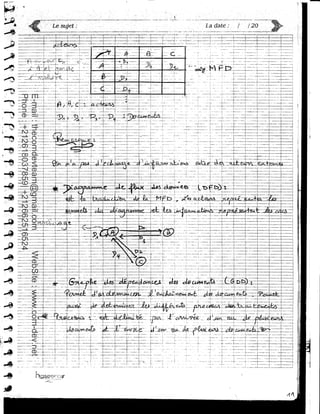 Le sujet :
La date : / / 20
acteurs
A B C
A D1 D2 → MFD
B D3
C D4
A, B, C : acteurs
D1, D2, D3, D4 : Documents
Remarque :
On n'a pas d'échange d'informations entre des acteurs externes
* Diagramme de flux des données (DFD) :
est la traduction de la MFD, les acteurs représentés les
sommets du diagramme et les informations représentent les arcs
A B
D4
C
* Graphe des dépendances des documents (GDD) :
Permet d'ordonnancer l'enchaînement des documents, Permet
aussi de déterminer les différents processus des traitements
* Processus : est délimité par l'arrivée d'un ou de plusieurs
documents et l'envoie d'un ou de plusieurs documents.
E-mail : thecomdevteam@gmail.com WebSite : www.com-dev.net
Phone : +212618037859/+212662516624
11